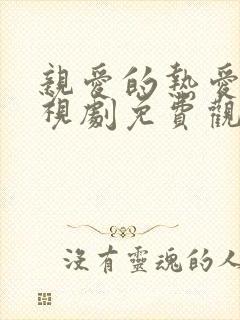 親愛的熱愛
視劇免費觀
沒有靈魂的人